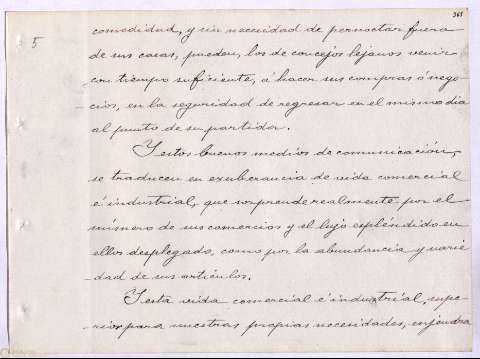 361
5
comodidad, y sin necesidad de pernoctar fuera
de sus casas, pueden, los de concejos lejanos venir
con tiempo suficiente, á hacer sus compras ó nego-
cios, en la seguridad de regresar en el mismo dia
al punto de su partida.
Y estos buenos medios de comunicación,
se traducen en exuberancia de vida comercial
é industrial, que sorprende realmente por el
número de sus comercios y el lujo espléndido en
ellos desplegado, como por la abundancia y varie-
-dad de sus artículos.
Y esta vida comercial é industrial, supe-
-rior para nuestras propias necesidades, enjendra